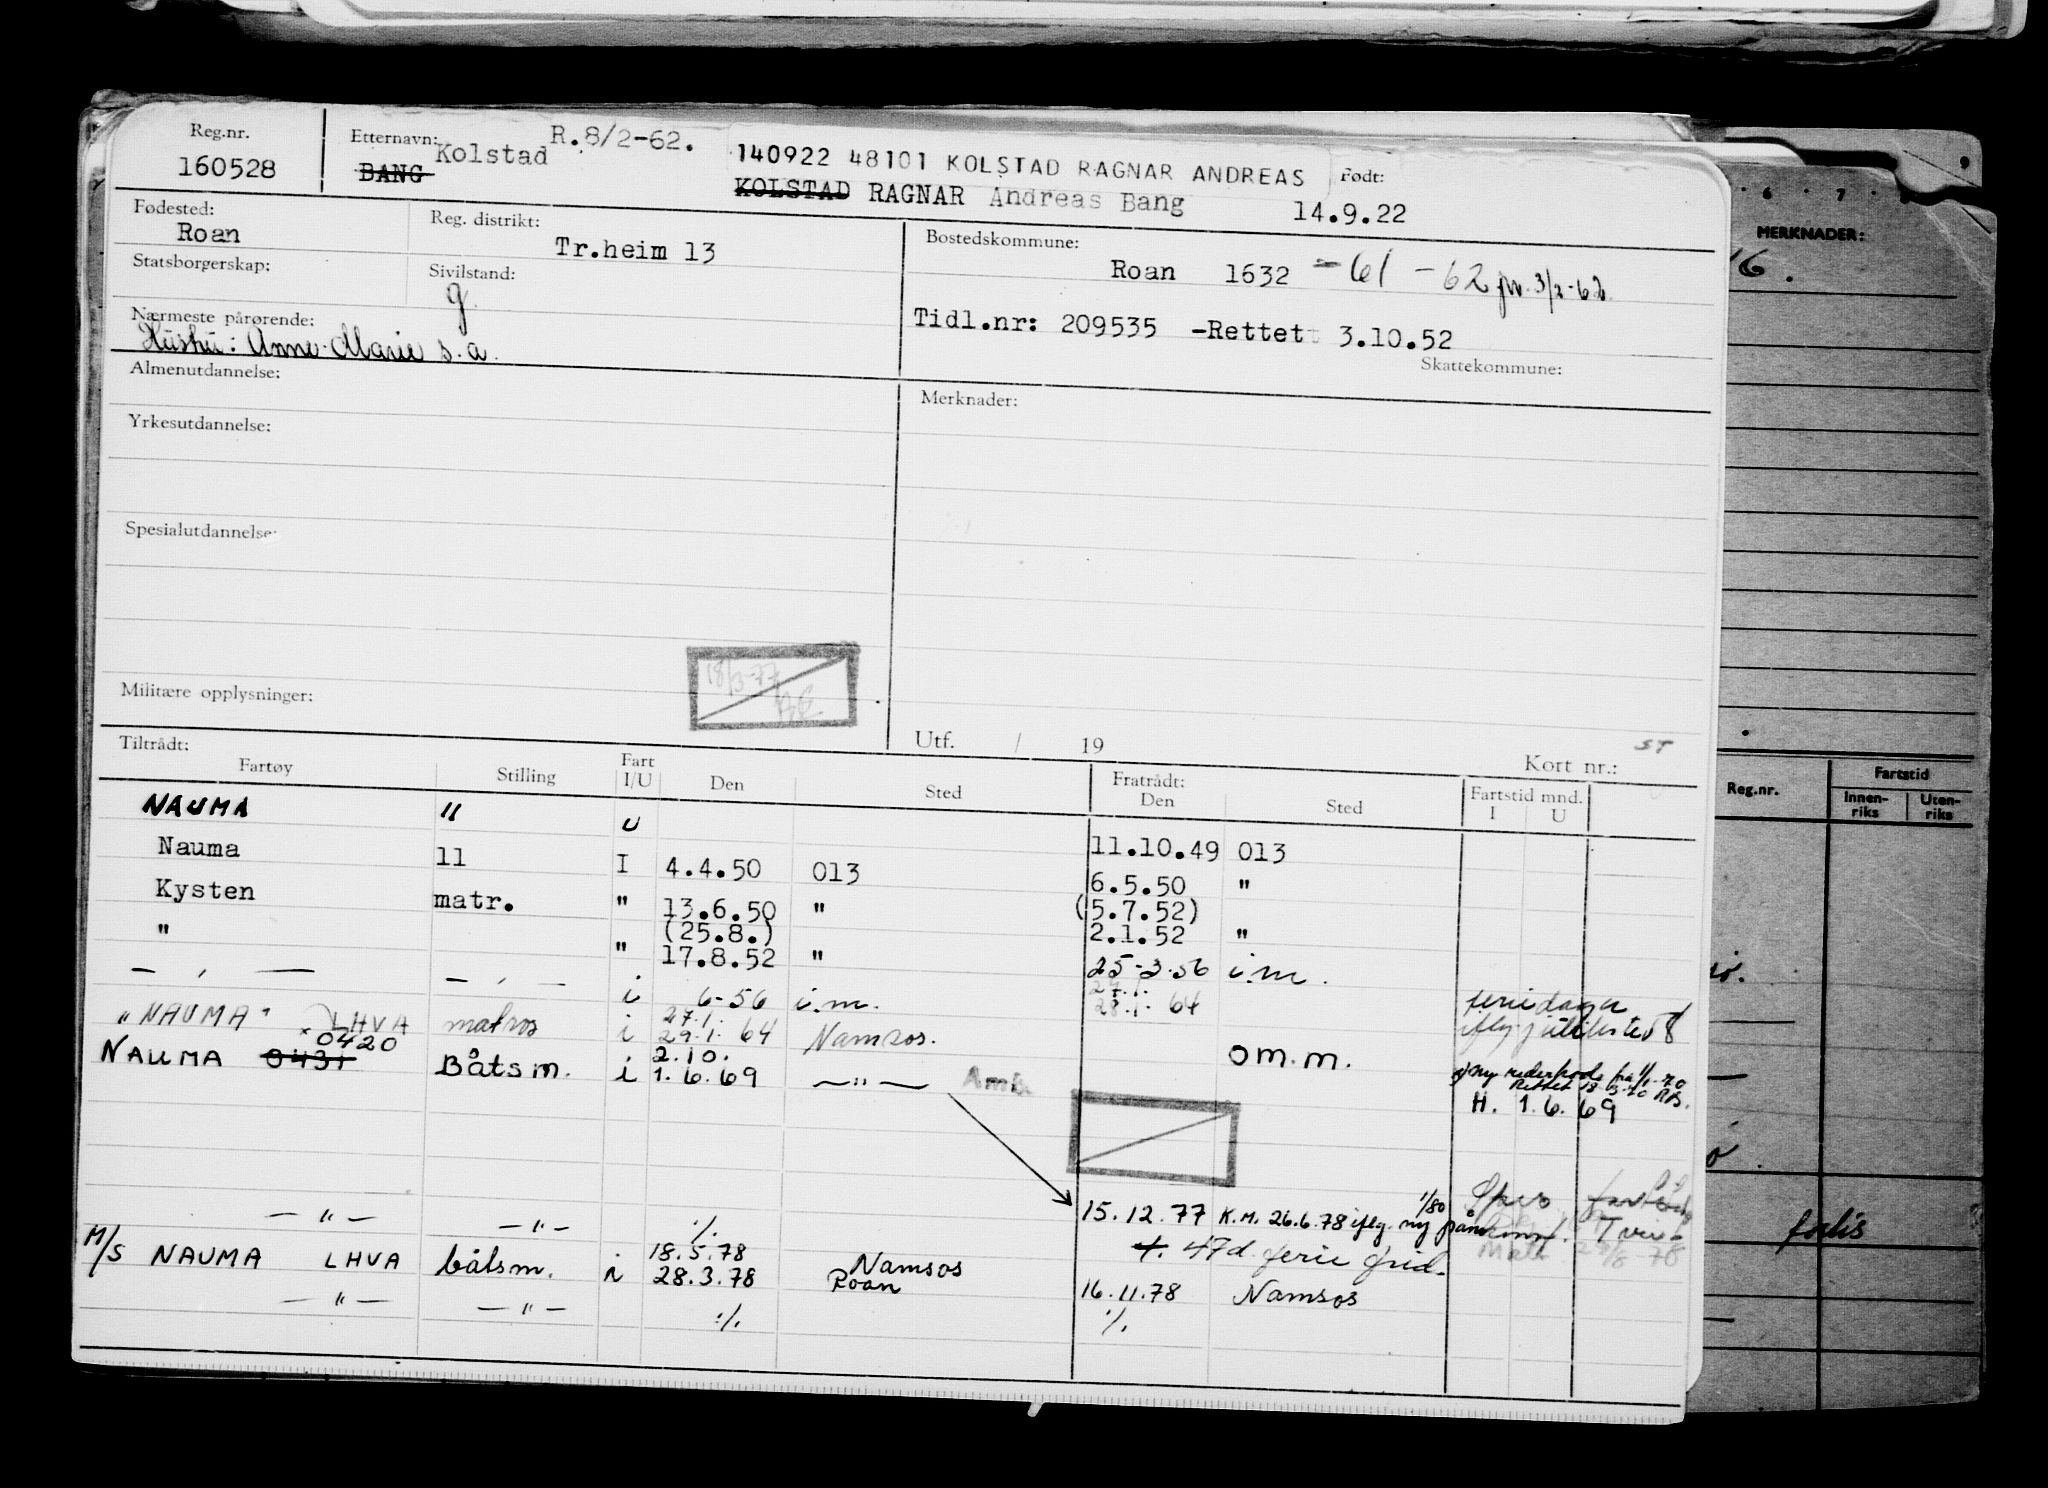 Reg.nr. Etternavn: R.8/2-62. 140922 48101 KOLSTAD RAGNAR ANDREAS Født:
160528 BANG Kolstad KOLSTAD RAGNAR Andreas Bang 14.9.22
Fødested: Reg. distrikt: Bostedskommune:
Roan Tr.heim 13 Roan 1632 -61 -62 3/2-62
Statsborgerskap: Sivilstand:
g.
Nærmeste pårørende: Tidl.nr: 209535 -Rettet 3.10.52
Hushu: Anne-Marie s.a.
Skattekommune:
Almenutdannelse: Merknader:
Yrkesutdannelse:
Spesialutdannelse:
Militære opplysninger:
18/3-77
Utf. / 19 ST
Kort nr.:
Tiltrådt: Fratrådt:
Fartøy Stilling Fart I/U Den Sted Den Sted Fartstid mnd. I U
NAUMA " U 11.10.49 013
Nauma 11 I 4.4.50 013 6.5.50 "
Kysten matr. " 13.6.50 " (5.7.52)
(25.8.) 2.1.52 "
" " 17.8.52 " 25-3.56 i.m.
— , — — , — i 6-56 i.m. 27.1.
28.1. 64 feriedager
"NAUMA" LHVA matros i 27.1.
29.1. 64 Namsos.
× 0420 2.10. om.m.
NAUMA 0431 Båtsm. i 1.6.69 —"— ny rederkode fra 1/1-70
Rettet 18-3-70
H. 1.6.69
—"— —"— ./. 15.12.77 K.M. 26.6.78 iflg. ny 1/80
+ 47 d. ferie
18.5.78 Namsos
M/S NAUMA LHVA båtsm. i 28.3.78 Roan 16.11.78 Namsos
—"— —"— ./. ./.
9
6 7
MERKNADER:
16.
Reg.nr. Fartstid
Innenriks Utenriks